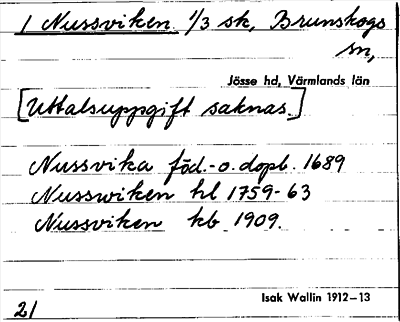 1 Nussviken 1/3 sk, Brunskogs
sn,
Jösse hd, Värmlands län
[Uttalsuppgift saknas.]
Nussvika föd.-o.dopb. 1689
Nusswiken hl 1759-63
Nussviken kb 1909.
Isak Wallin 1912–13
21